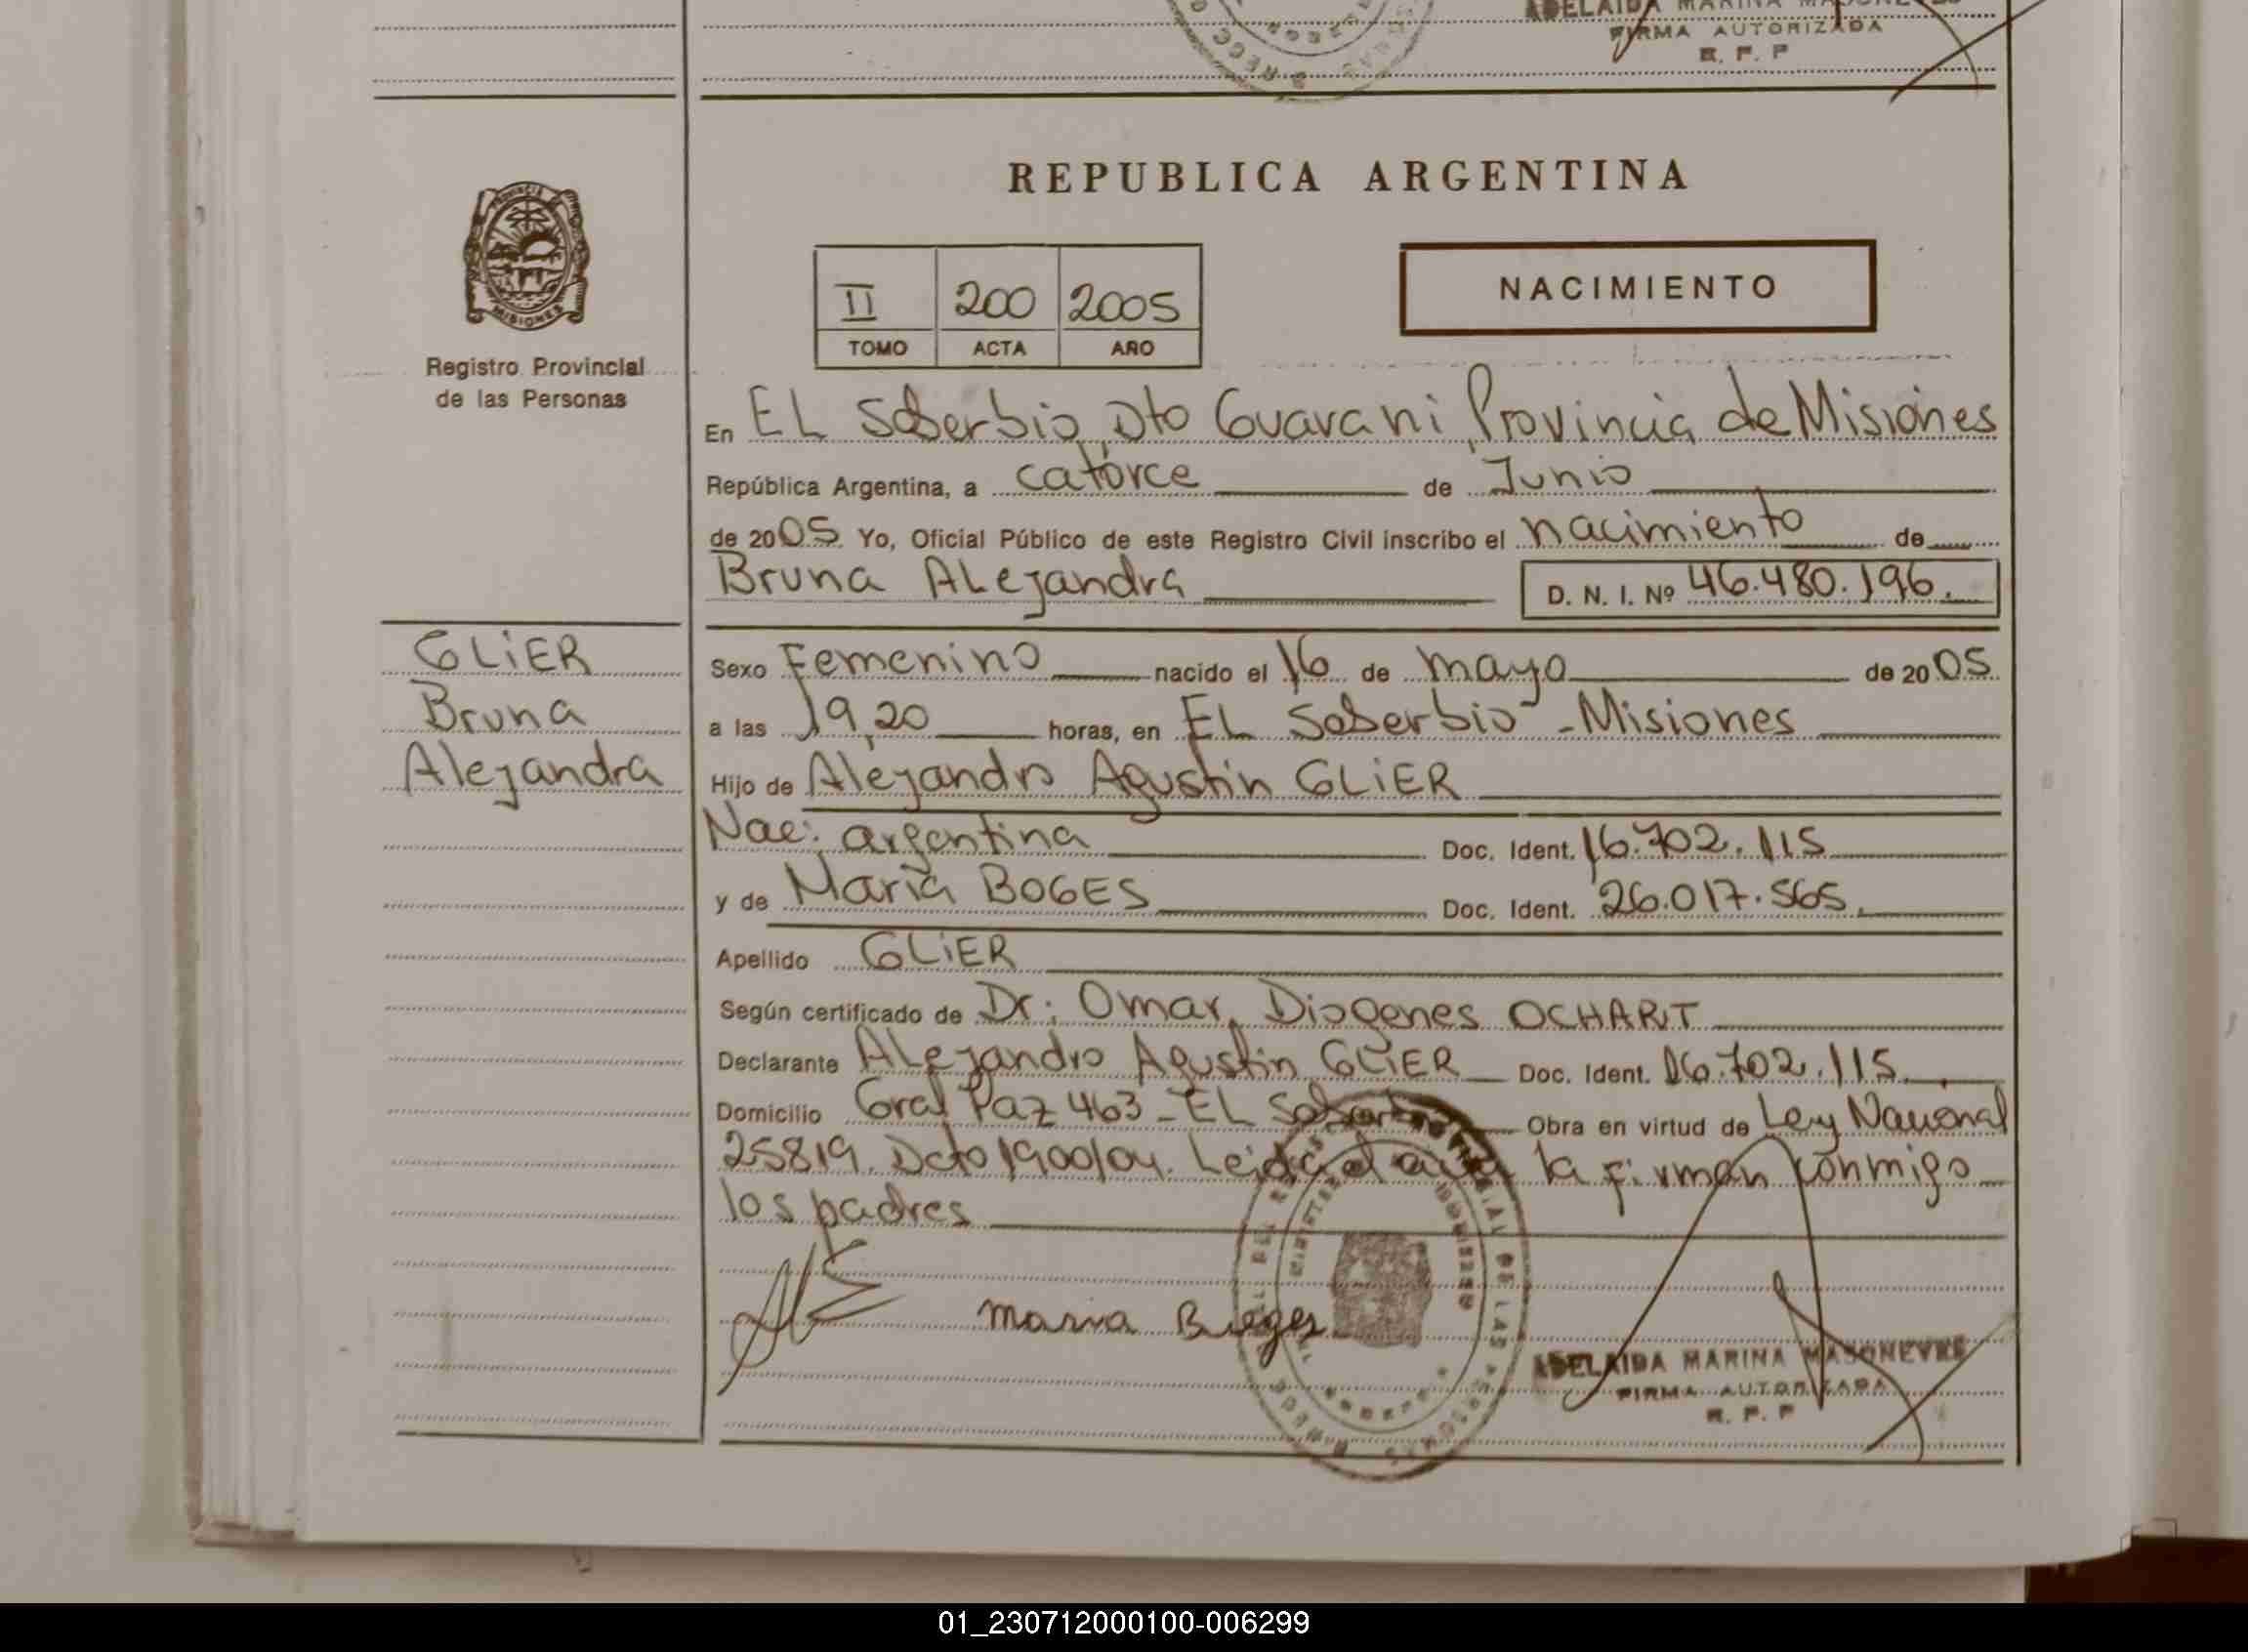 FIRMA AUTORIZADA
R. P. P
REPUBLICA ARGENTINA
PROVINCIA
MISIONES
Registro Provincial
de las Personas
II 200 2005
TOMO ACTA AÑO
NACIMIENTO
En EL Soberbio, Dto Guarani, Provincia de Misiones
República Argentina, a catorce de Junio
de 2005 Yo, Oficial Público de este Registro Civil inscribo el nacimiento de
Bruna ALejandra D. N. I. Nº 46.480.196.
GLiER
Bruna
Alejandra
Sexo Femenino nacido el 16 de mayo de 2005
a las 19,20 horas, en EL Soberbio - Misiones
Hijo de Alejandro Agustin GLiER
Nac: argentina Doc. Ident. 16.702.115
y de Maria BOGES Doc. Ident. 26.017.565.
Apellido GLiER
Según certificado de Dr: Omar, Diogenes OCHART
Declarante ALejandro Agustin GLiER Doc. Ident. 16.702.115.
Domicilio Gral Paz 463 - EL Soberbio Obra en virtud de Ley Nacional
25819. Dcto 1900/04. Leida el acta la firman conmigo
los padres
Maria
ADELAIDA MARINA MASONEVES
FIRMA AUTORIZADA
R. P. P
01_230712000100-006299